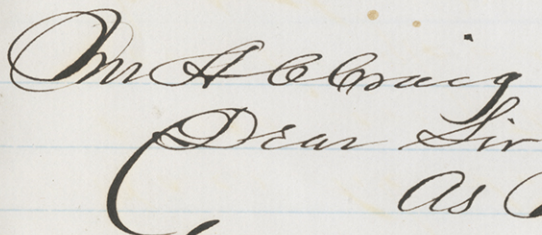 Mr H C Craig
Dear Sir
As